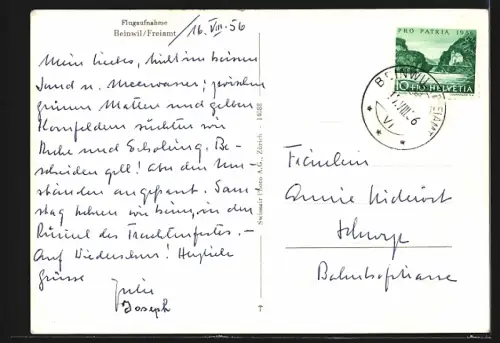 Flugaufnahme
Beinwil/Freiamt
16. VIII. 56
Mein liebes, nicht im heissen
Sand u. Meerwasser; zwischen
grünen Matten und gelben
Kornfeldern suchten wir
Ruhe und Erholung. Be-
scheiden gell! Aber den Um-
ständen angepasst. Sams-
tag kehren wir heim, in den
Rummel des Trachtenfestes. -
Auf Wiedersehen! Herzlich
Grüsse
Julie
Joseph
Swissair Photo A.G., Zürich 14088
PRO PATRIA 1956
10 HELVETIA
BEINWIL (FREIAMT)
VIII. 56
Fräulein
Annie
Schwyz
Bahnhofstrasse